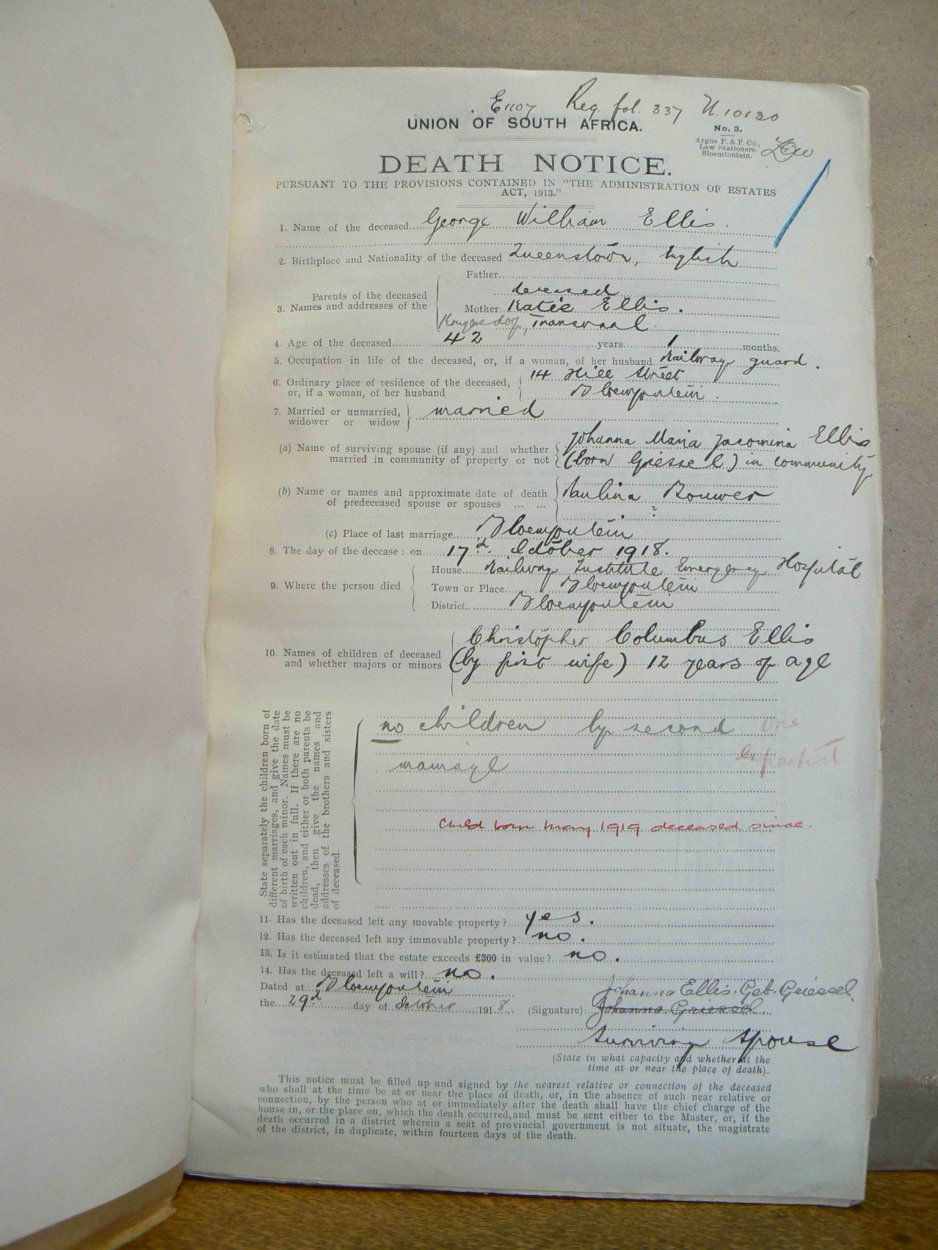 E 1107 Reg. fol. 337 N. 10130
UNION OF SOUTH AFRICA.
No. 3.
Argus P. & P. Co.,
Law Stationers,
Bloemfontein.
DEATH NOTICE.
PURSUANT TO THE PROVISIONS CONTAINED IN "THE ADMINISTRATION OF ESTATES
ACT, 1913."
1. Name of the deceased George William Ellis.
2. Birthplace and Nationality of the deceased Queenstown, English
Father
deceased
3. Names and addresses of the Parents of the deceased
Mother Katie Ellis.
Krugersdorp, Transvaal
4. Age of the deceased 42 years 1 months.
5. Occupation in life of the deceased, or, if a woman, of her husband Railway guard.
6. Ordinary place of residence of the deceased, 14 Hill Street
or, if a woman, of her husband Bloemfontein.
7. Married or unmarried, married
widower or widow
(a) Name of surviving spouse (if any) and whether Johanna Maria Jacomina Ellis
married in community of property or not (born Griessel) in community
(b) Name or names and approximate date of death Paulina Bouwer
of predeceased spouse or spouses ... ... ?
(c) Place of last marriage Bloemfontein
8. The day of the decease: on 17th October 1918.
House Railway Institute Emergency Hospital
9. Where the person died Town or Place Bloemfontein
District Bloemfontein
Christopher Columbus Ellis
10. Names of children of deceased (by first wife) 12 years of age
and whether majors or minors
State separately the children born of
different marriages, and give the date
of birth of each minor. Names must be
written out in full. If there are no
children, and either or both parents be
dead, then give the names and
addresses of the brothers and sisters
of deceased.
no children by second one
marriage expected
Child born May 1919 deceased since.
11. Has the deceased left any movable property? yes.
12. Has the deceased left any immovable property? no.
13. Is it estimated that the estate exceeds £300 in value? no.
14. Has the deceased left a will? no.
Dated at Bloemfontein
Johanna Ellis. Geb. Griessel.
the 29th day of October 1918 (Signature) Johanna Griessel
Surviving Spouse
(State in what capacity and whether at the
time at or near the place of death).
This notice must be filled up and signed by the nearest relative or connection of the deceased
who shall at the time be at or near the place of death, or, in the absence of such near relative or
connection, by the person who at or immediately after the death shall have the chief charge of the
house in, or the place on, which the death occurred, and must be sent either to the Master, or, if the
death occurred in a district wherein a seat of provincial government is not situate, the magistrate
of the district, in duplicate, within fourteen days of the death.